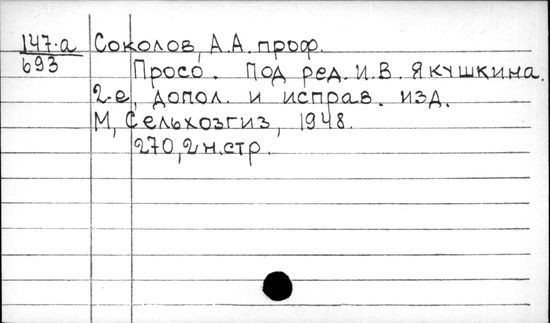 147-а Соколов, А.А. проф.
693
Просо. Под ред. И.В. Якушкина.
2-е, допол. и исправ. изд.
М, Сельхозгиз, 1948.
270,2 н.стр.